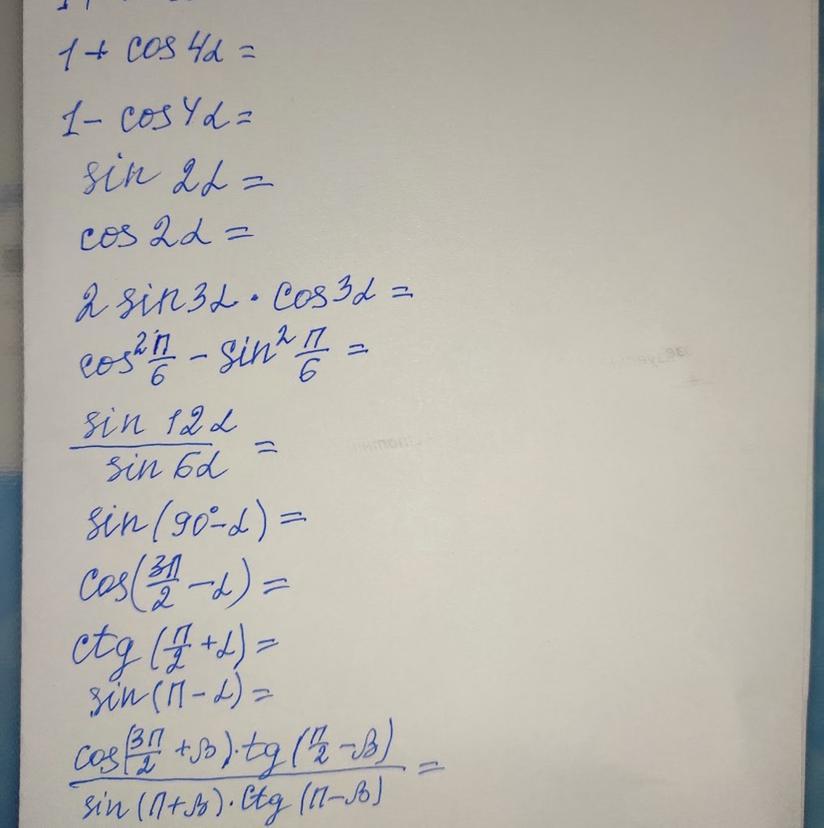 1 + cos 4α =
1 - cos 4α =
sin 2α =
cos 2α =
2 sin 3α · cos 3α =
cos² π/6 - sin² π/6 =
sin 12α / sin 6α =
sin (90° - α) =
cos (3π/2 - α) =
ctg (π/2 + α) =
sin (π - α) =
cos (3π/2 + β) · tg (π/2 - β) / sin (π + β) · ctg (π - β) =